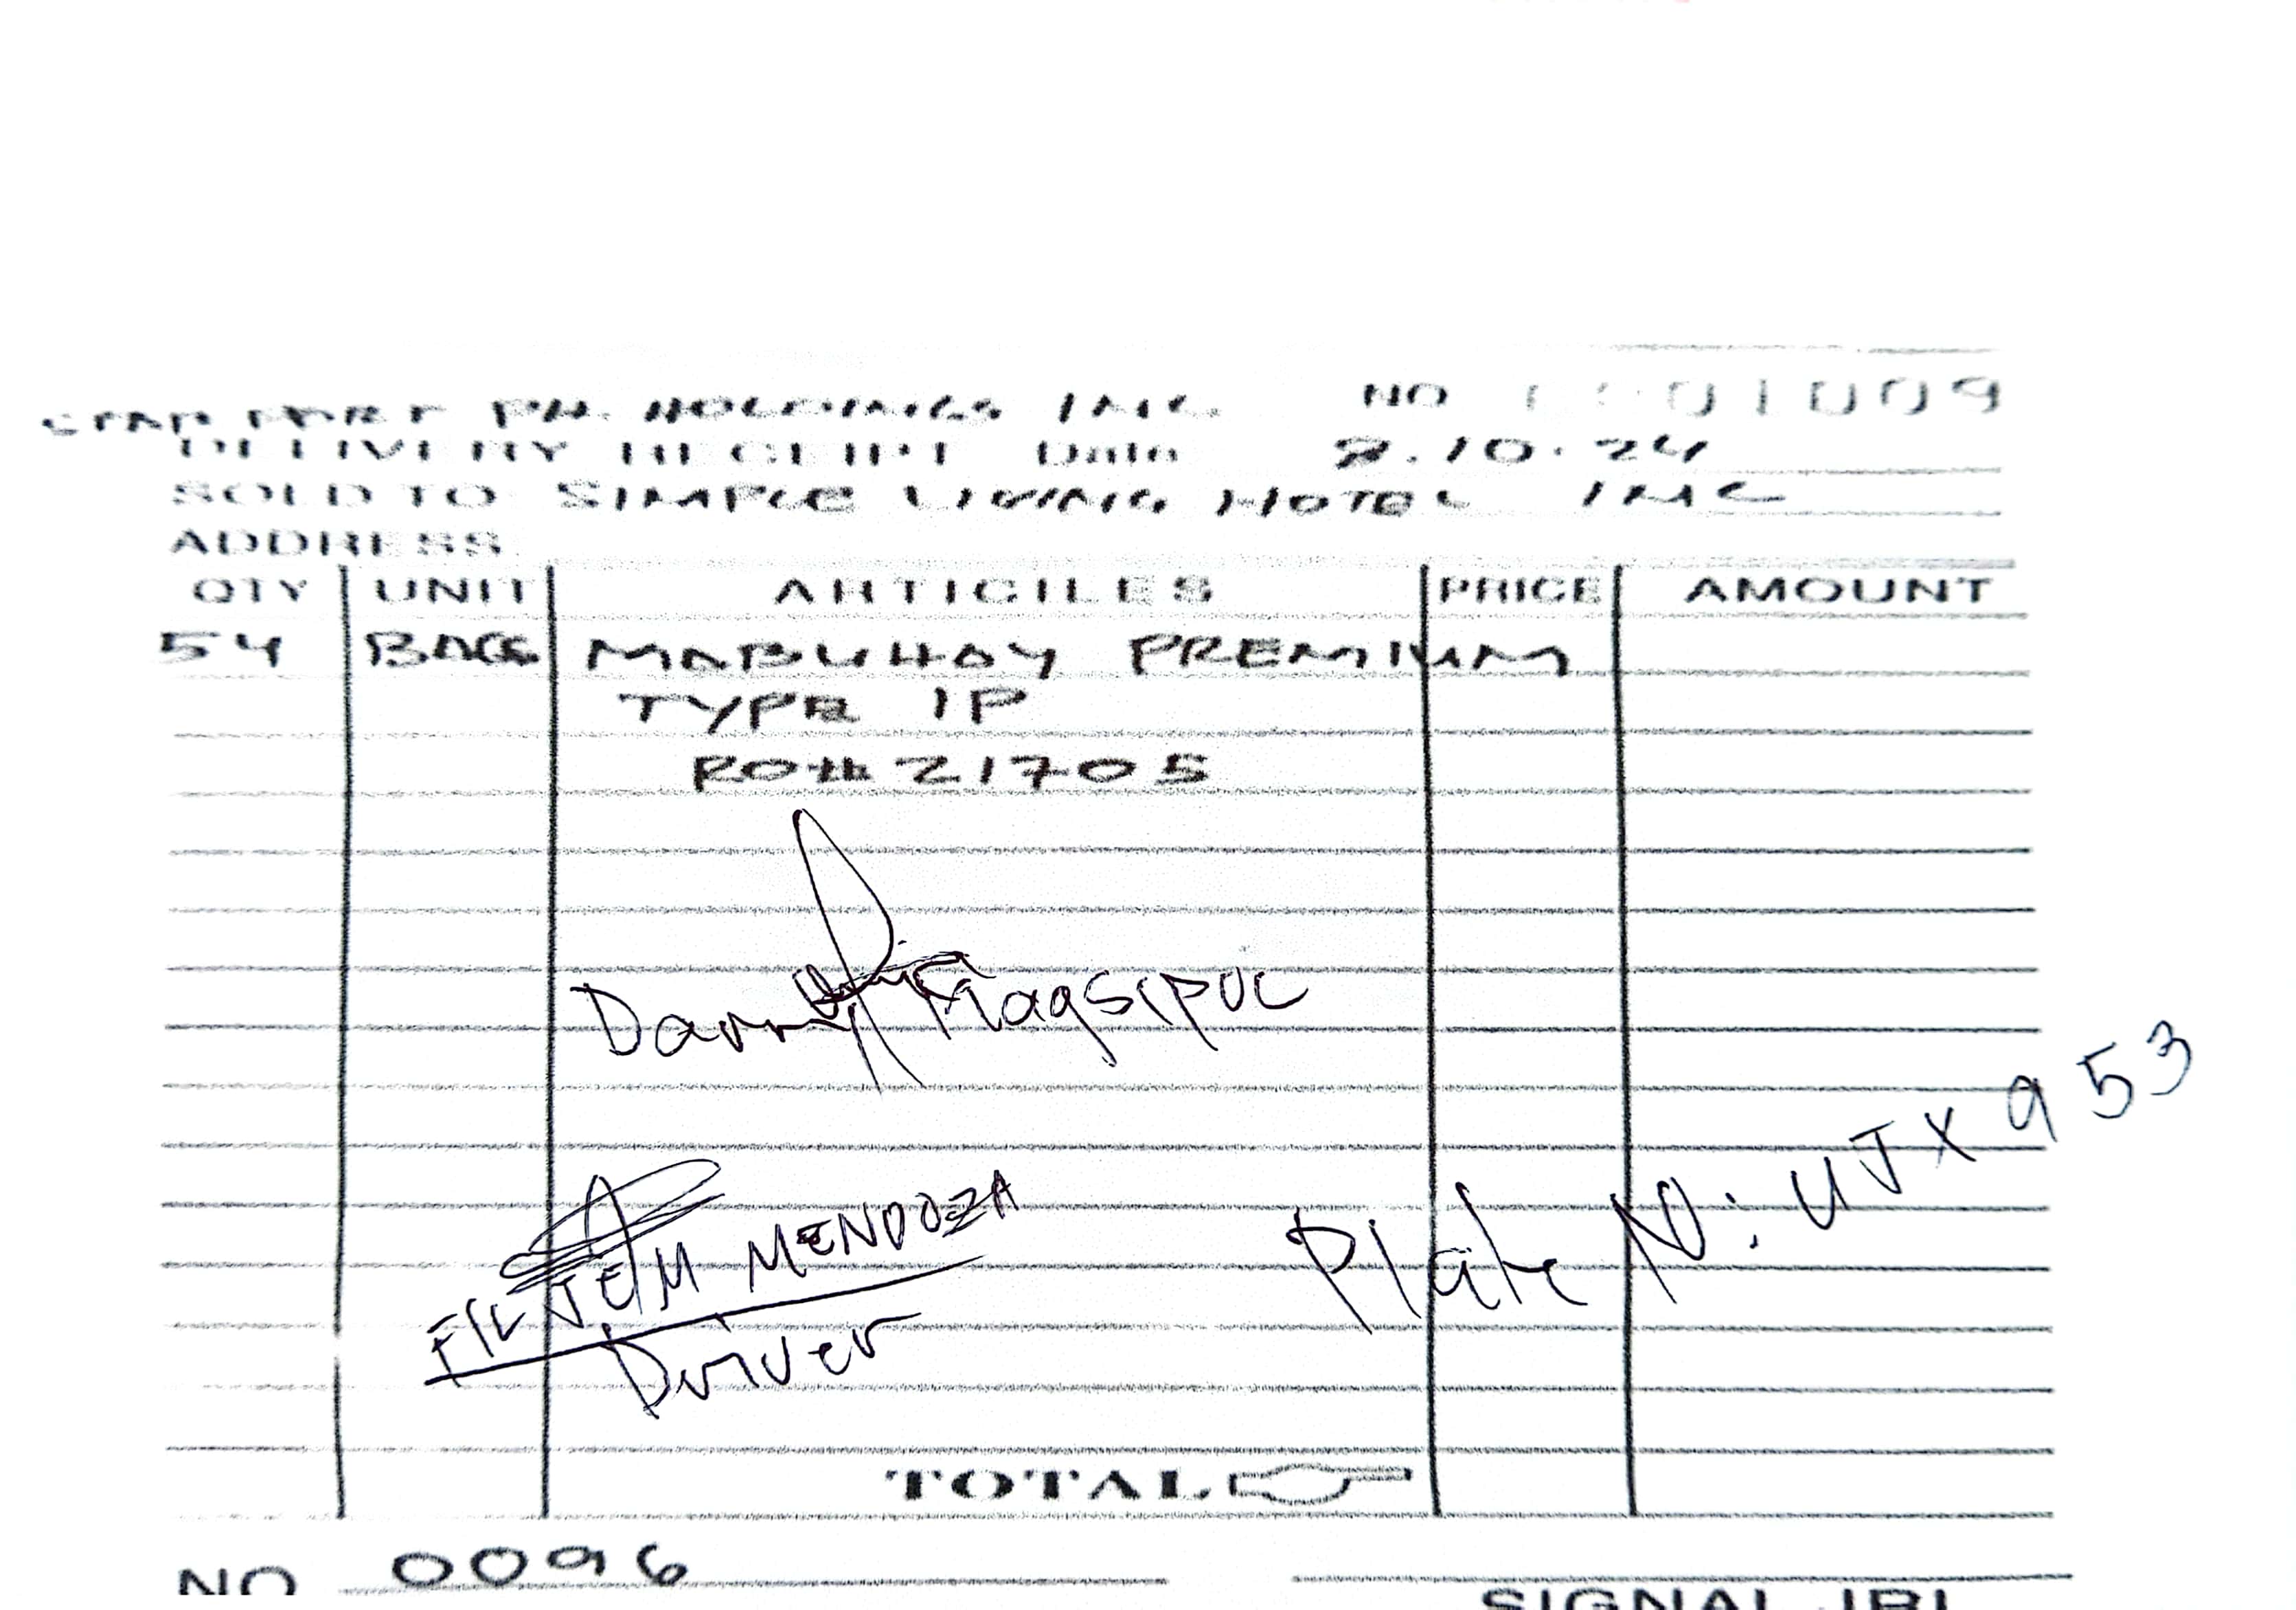 PH. HOLDINGS INC. NO 1009
DELIVERY RECEIPT Date 2.10.24
SOLD TO SIMPLE LIVING HOTEL INC
ADDRESS
QTY UNIT ARTICILES PRICE AMOUNT
54 BAGS MABUHAY PREMIUM
TYPE 1P
PO# 21705
Danny Magsipoc
FIL JEM MENDOZA
Driver
Plate NO: UJX 953
TOTAL
NO 0096